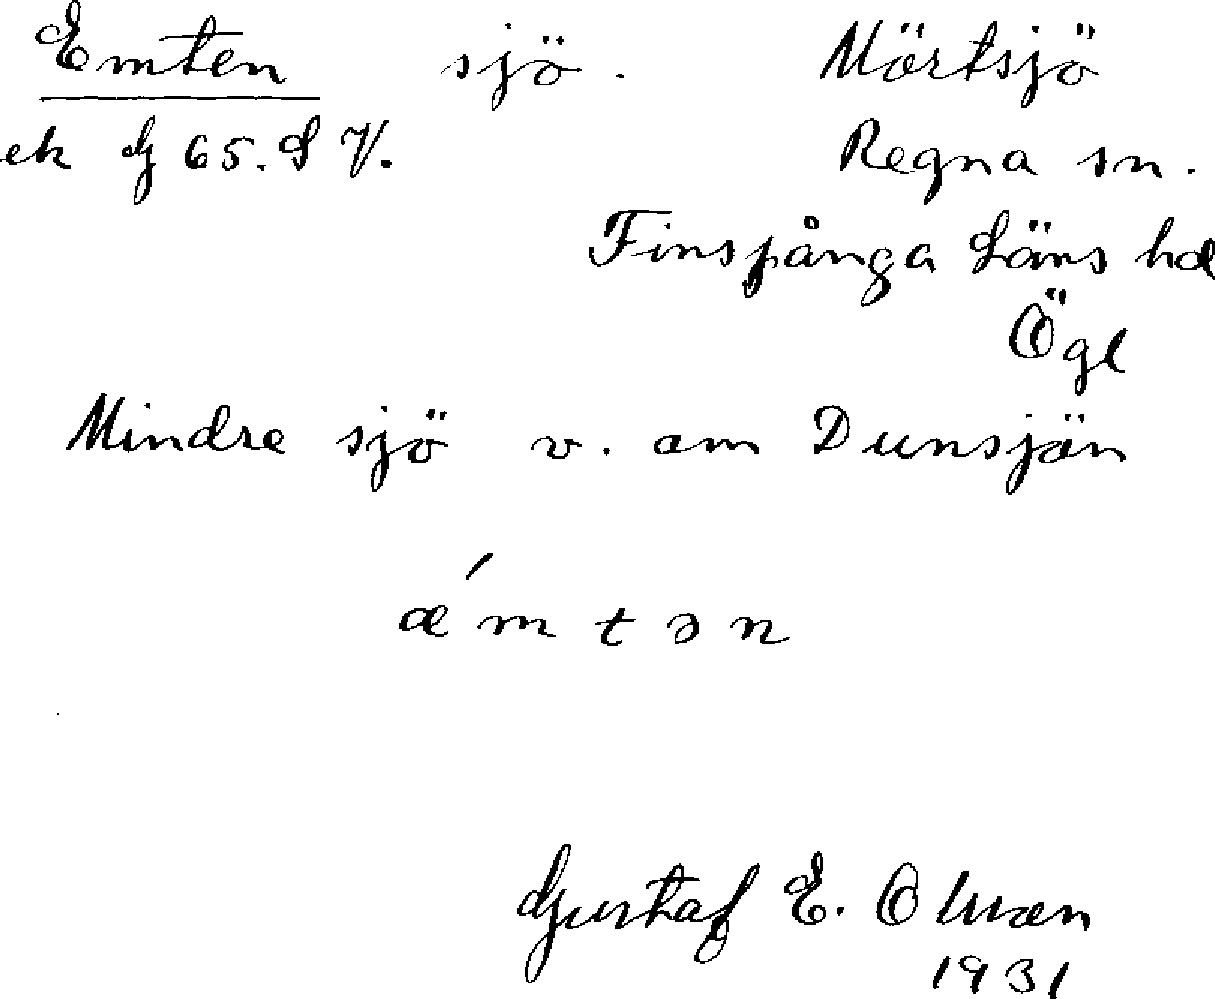 Emten sjö. Mörtsjö
ek G 65. S V. Regna sn.
Finspånga Läns hd
Ögl
Mindre sjö v. om Dunsjön
æ´ m t ə n
Gustaf E. Olsson
1931